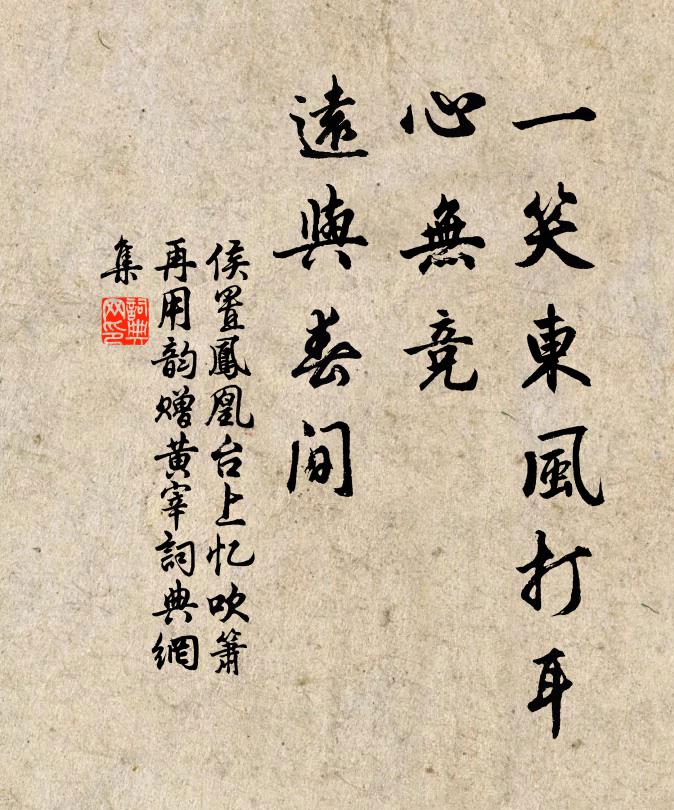 一笑東風打耳
心無競
遠與春閒
侯置鳳凰台上忆吹簫
再用韵赠黄宰詞典網
集
詞典
网印